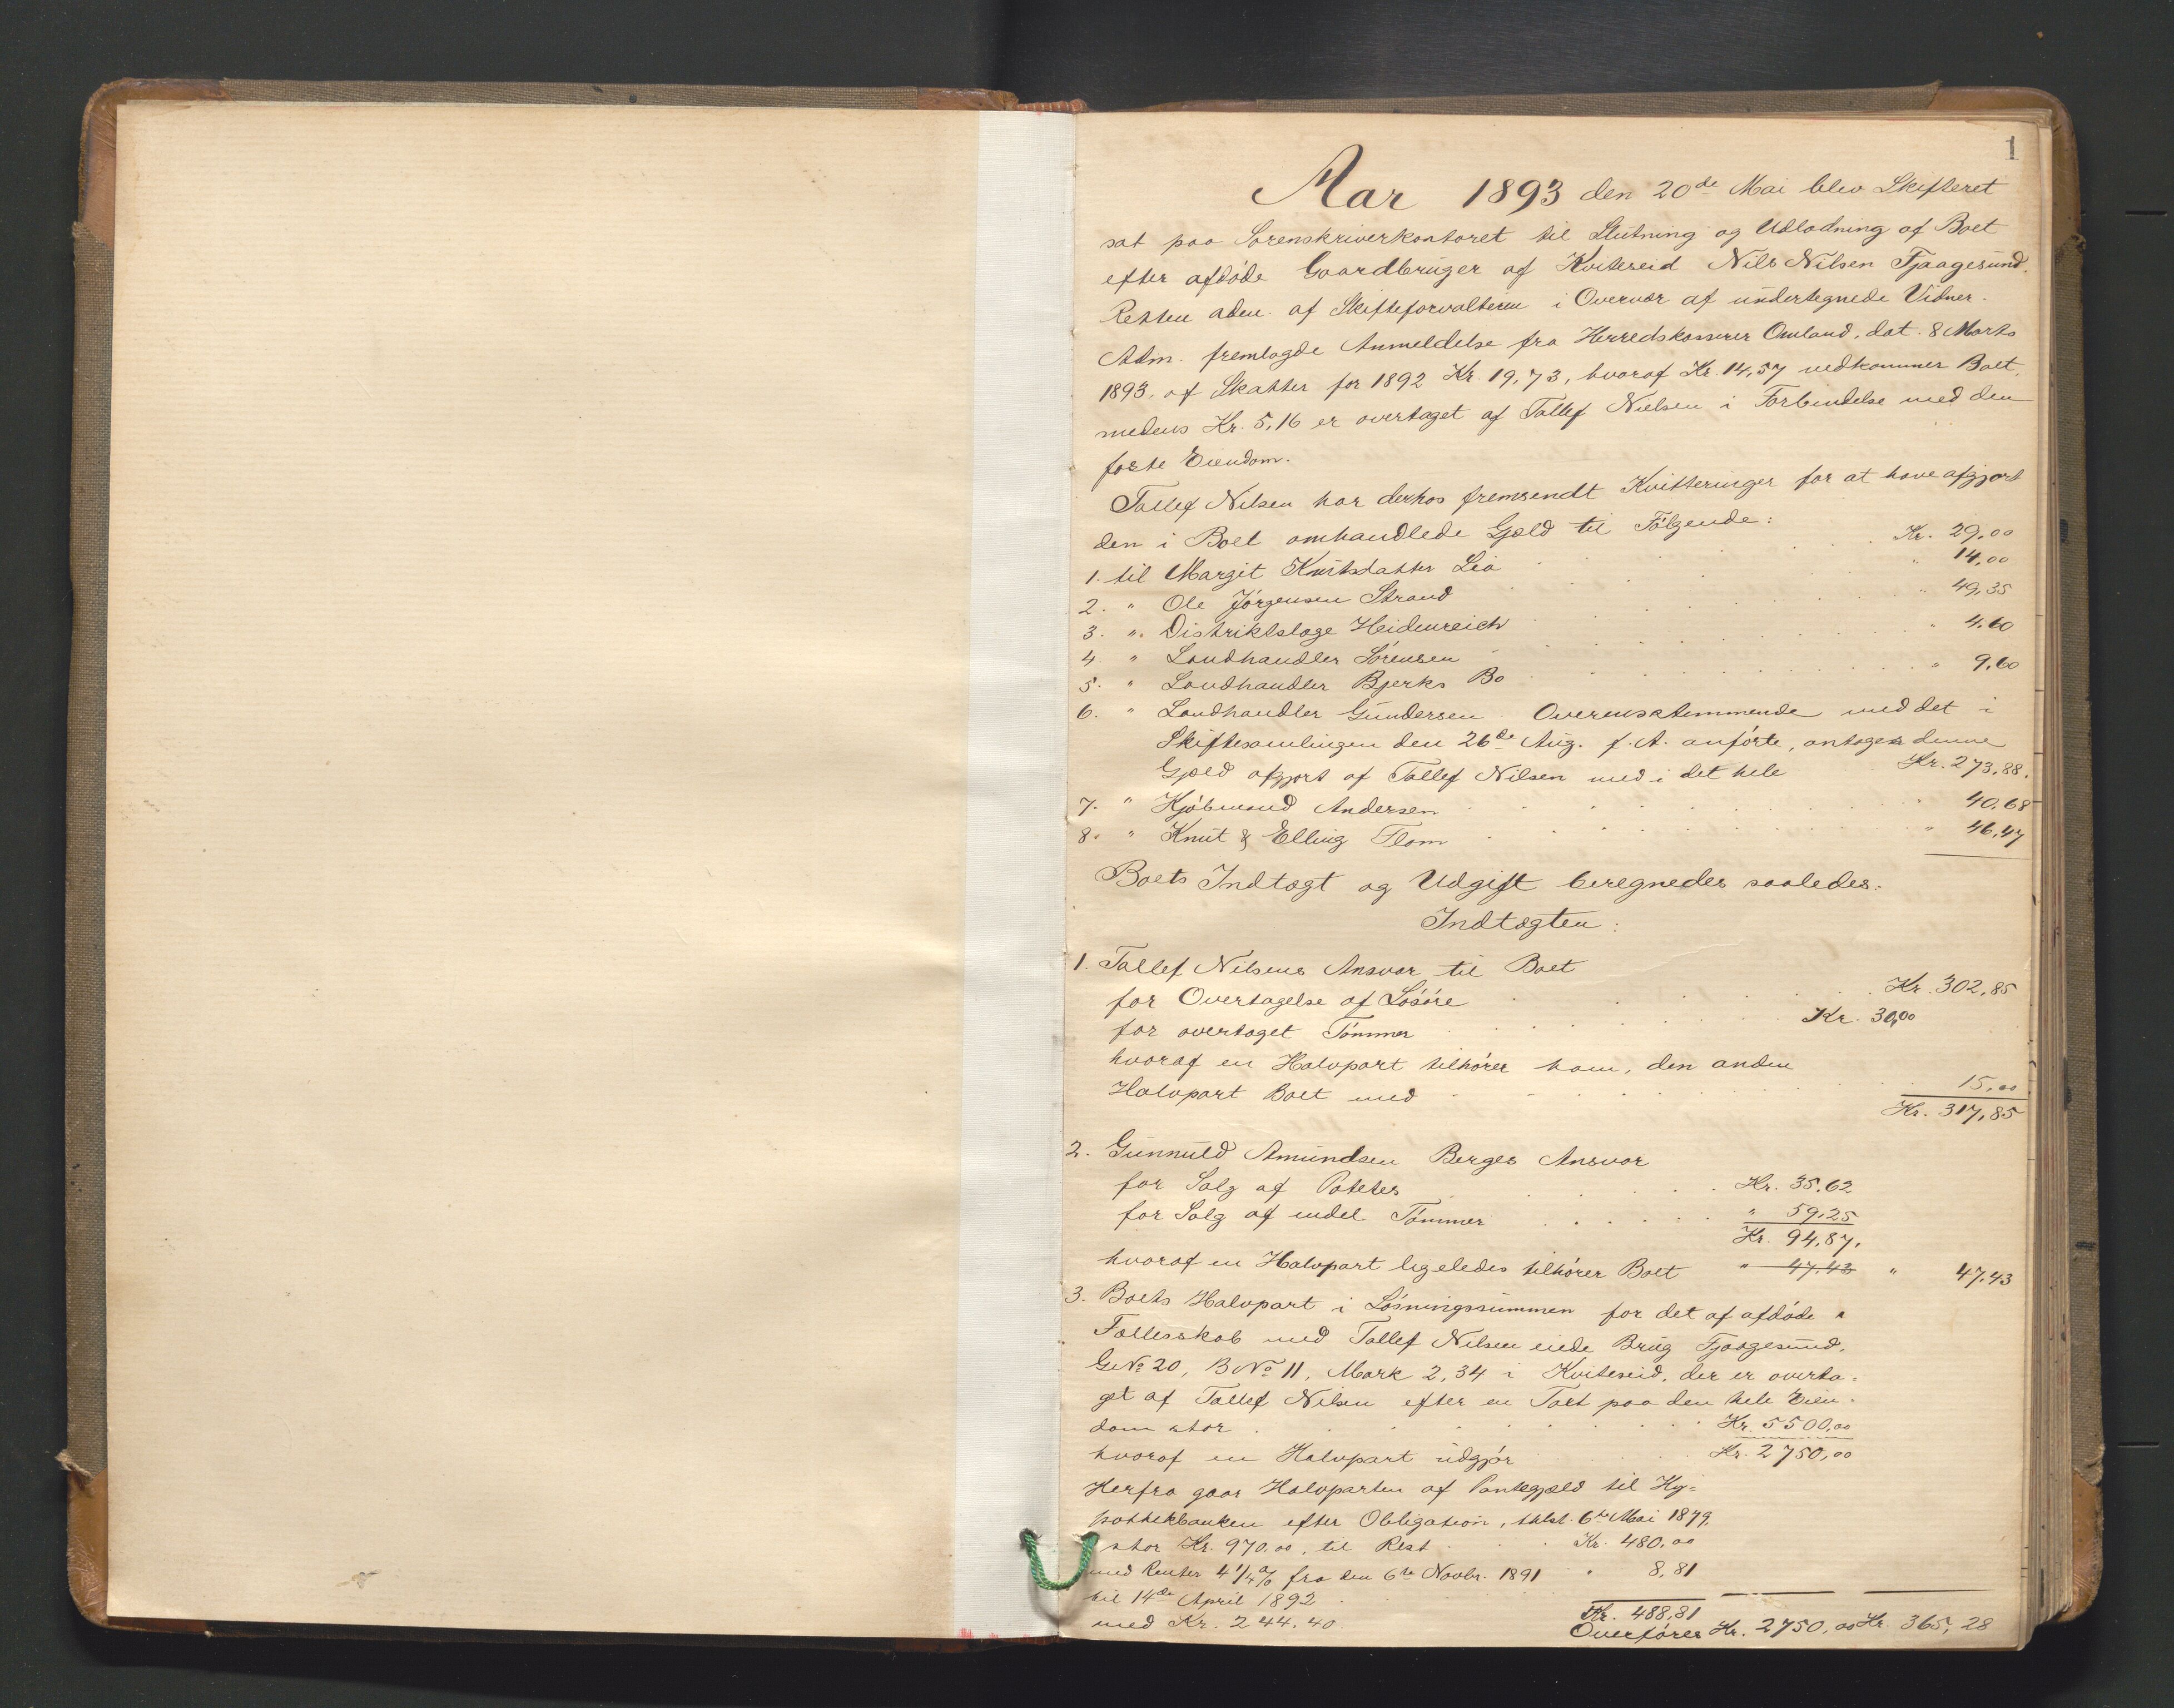 1
Aar 1893 den 20de Mai blev Skifteret
sat paa Sorenskriverkontoret til Slutning og Udlodning af Boet
efter afdöde Gaardbruger af Kvitereid Nils Nilsen Fjaagesund.
Retten adm. af Skifteforvalteren i Overvær af undertegnede Vidner.
Adm. fremlagde Anmeldelse fra Herredskasserer Omland, dat. 8 Marts
1893, af Skatter for 1892 Kr. 19,73, hvoraf Kr. 14,57 vedkommer Boet,
medens Kr. 5,16 er overtaget af Tallef Nielsen i Forbindelse med den
faste Eiendom.
Tallef Nilsen har derhos fremsendt Kvitteringer for at have afgjort
den i Boet omhandlede Gjæld til Fölgende:
1. til Margit Knutsdatter Lia Kr. 29,00
2. " Ole Jörgensen Strand " 14,00
3. " Distriktslæge Heidenreich " 49,35
4. " Landhandler Sörensen " 4.60
5. " Landhandler Bjerks Bo " 9,60
6. " Landhandler Gundersen. Overensstemmende med det i
Skiftesamlingen den 26de Aug. f. A. anförte, antages denne
Gjæld afgjort af Tallef Nilsen med i det hele Kr. 273,88.
7. " Kjöbmand Andersen " 40,68
8. " Knut & Elling Flom " 46,47
Boets Indtægt og Udgift beregnedes saaledes:
Indtægten:
1. Tallef Nilsens Ansvar til Boet
for Overtagelse af Lösöre Kr. 302,85
for overtaget Tömmer Kr. 30,00
hvoraf en Halvpart tilhörer ham, den anden
Halvpart Boet med 15,00
Kr. 317,85
2. Gunnuld Amundsen Berges Ansvar
for Salg af Poteter Kr. 35,62
for Salg af endel Tömmer " 59,25
Kr. 94,87.
hvoraf en Halvpart ligeledes tilhörer Boet " 47,43 " 47,43
3. Boets Halvpart i Lösningssummen for det af afdöde i
Fællesskab med Tallef Nilsen eiede Brug Fjaagesund,
G.No 20, B No 11, Mark 2,34 i Kviteseid, der er overta-
get af Tallef Nilsen efter en Taxt paa den hele Eien-
dom stor Kr. 5500,00
hvoraf en Halvpart udgjör Kr. 2750,00
Herfra gaar Halvparten af Pantegjæld til Hy-
pothekbanken efter Obligation, thlst. 6te Mai 1879,
stor Kr. 970.00, til Rest Kr. 480.00
med Renter 4 1/4 % fra den 6te Novbr. 1891 " 8,81
til 14de April 1892
Kr. 488,81
med Kr. 244.40
Overföres Kr. 2750,00 Kr. 365,28